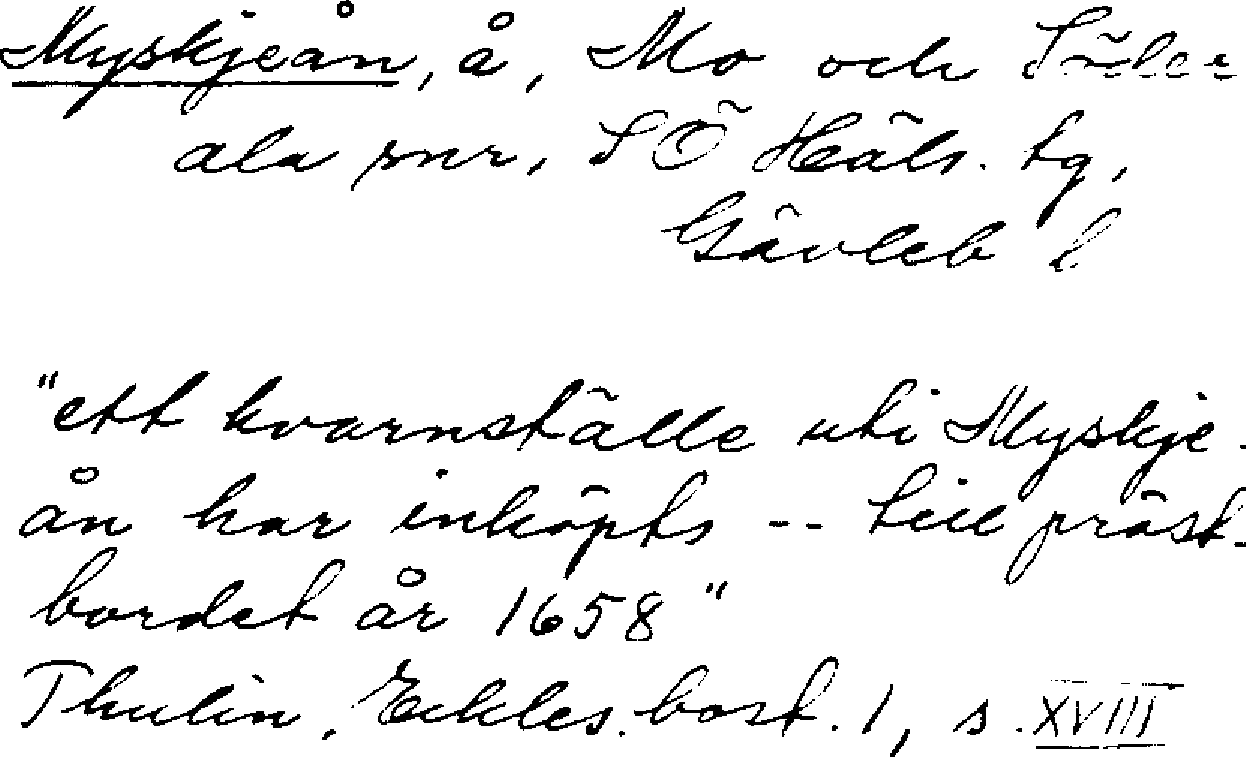 Myskjeån, å, Mo och Söder
ala snr, SÖ Häls. tg,
Gävleb l.
"ett kvarnställe uti Myskje-
ån har inköpts -- till präst-
bordet år 1658"
Thulin, Eckles. bost. 1, s. XVIII